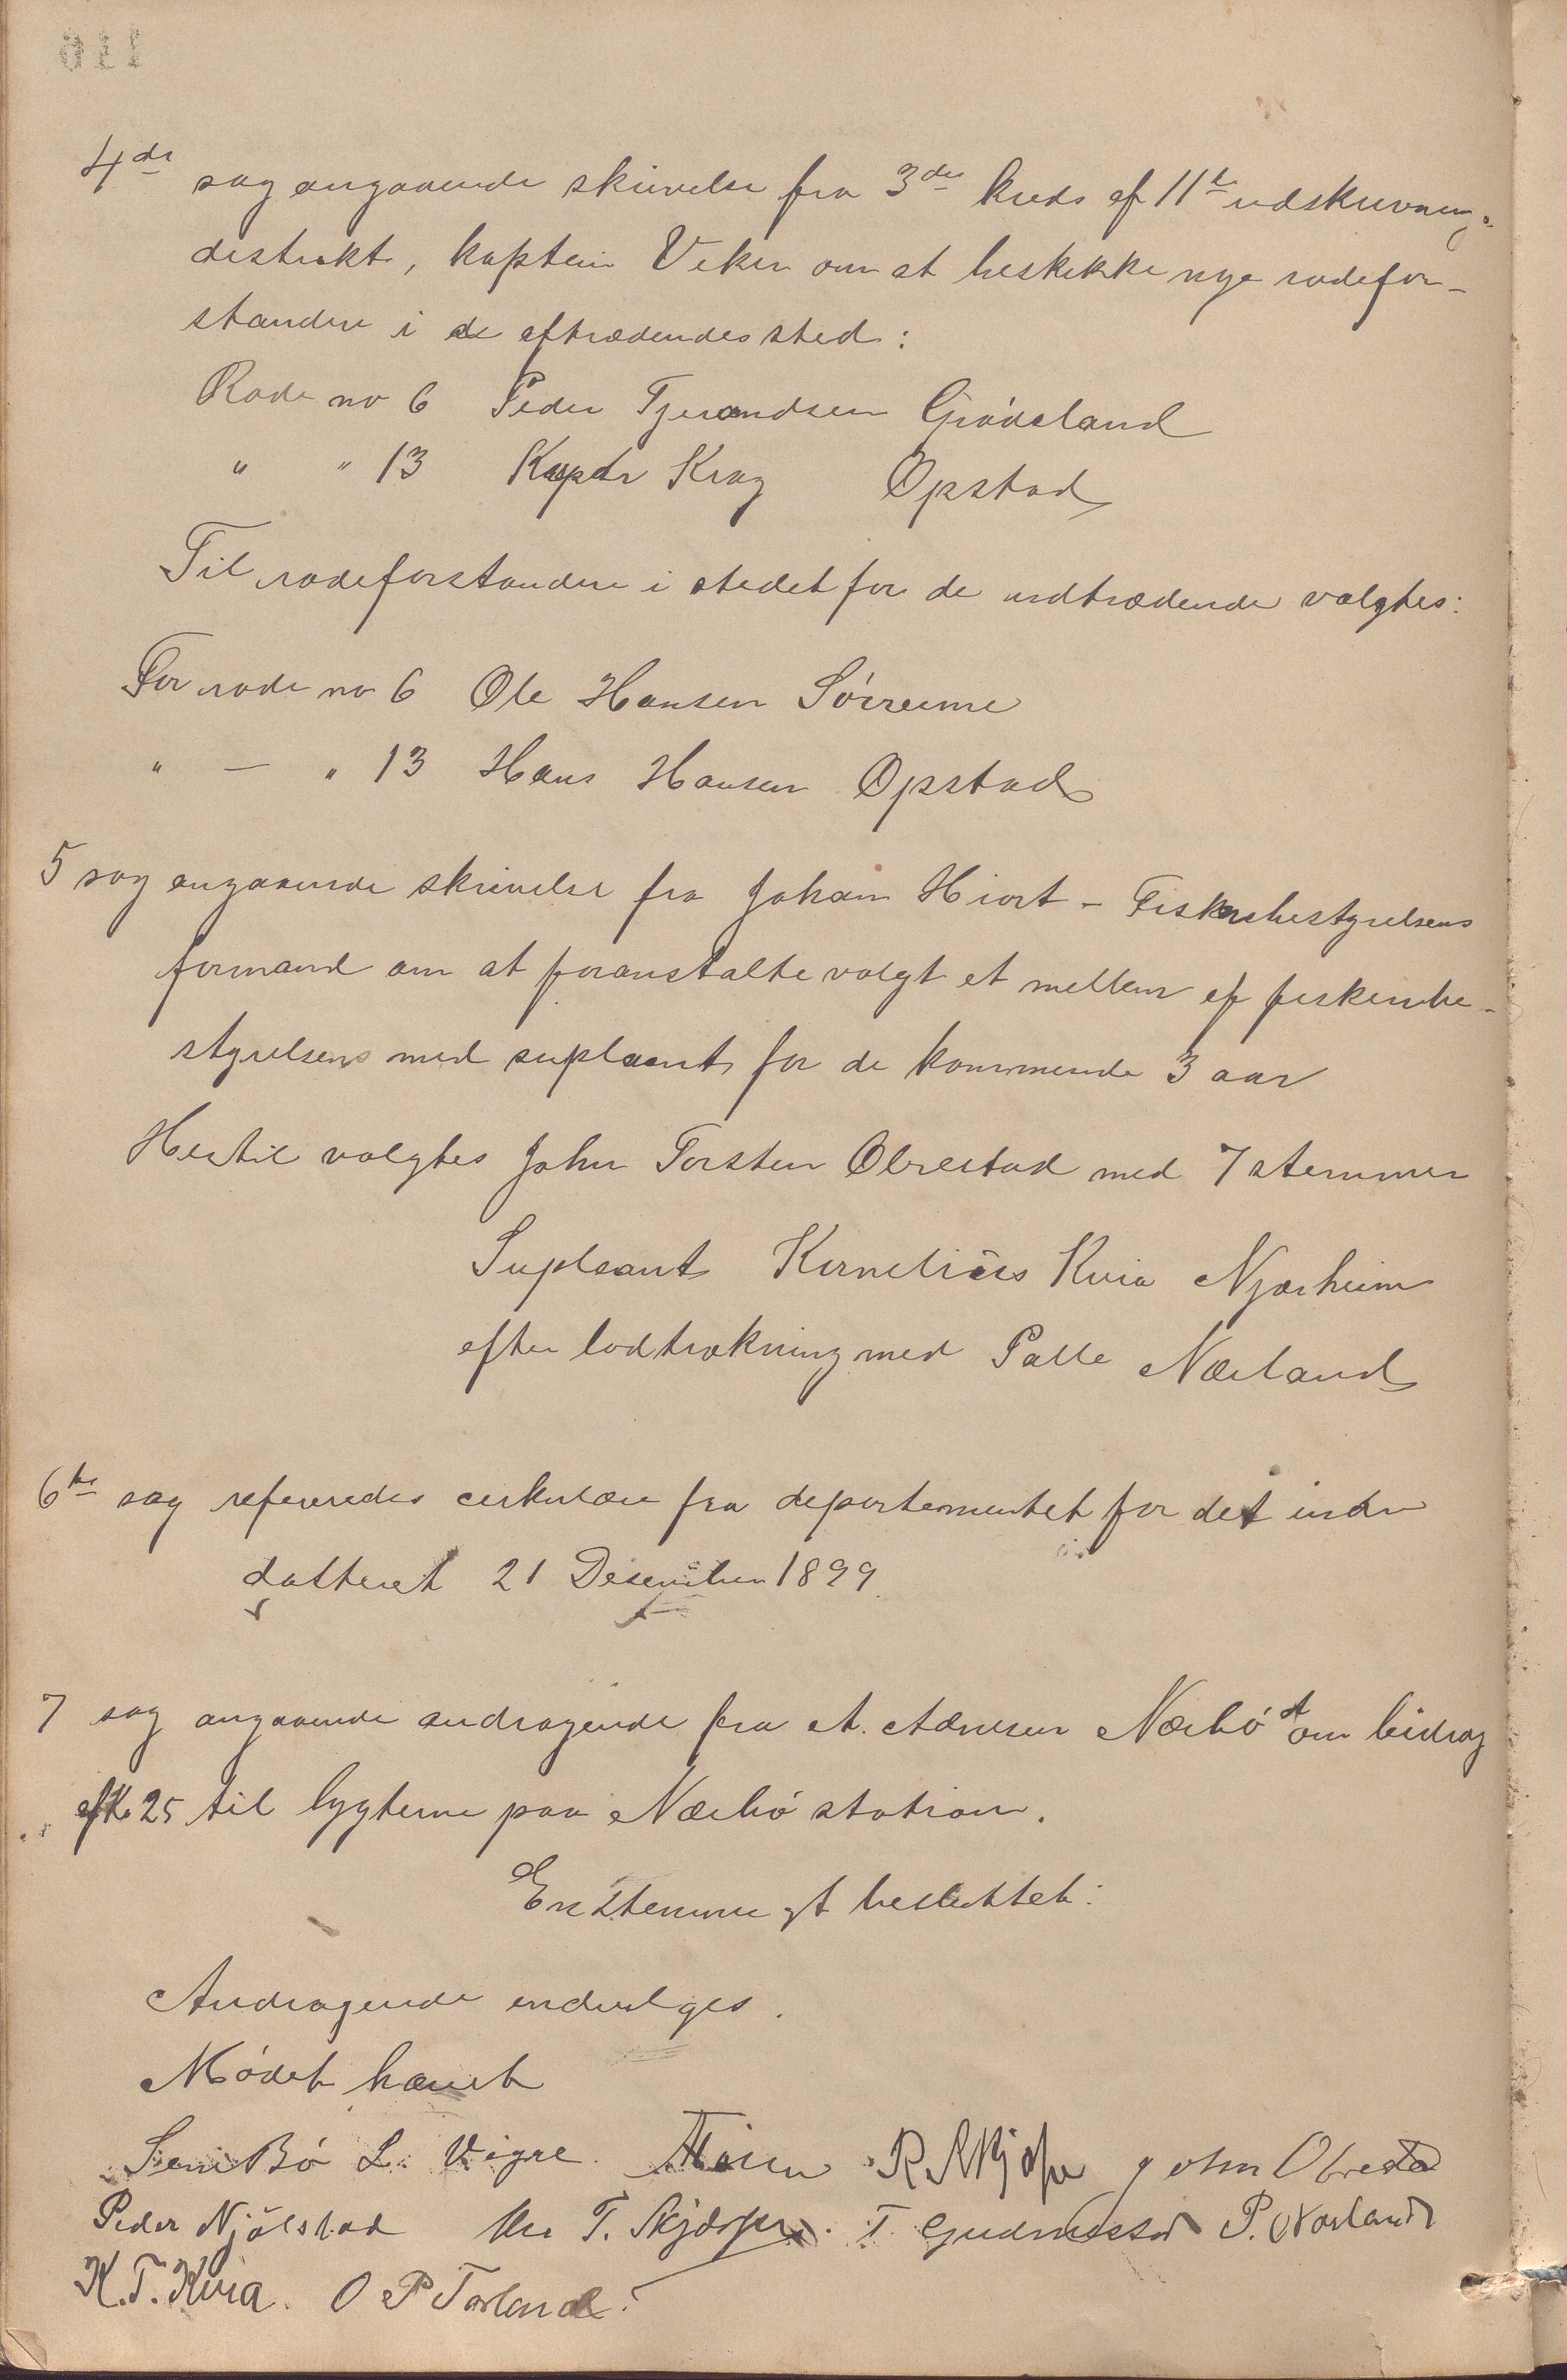 4de sag angaaende skrivelse fra 3die kreds af 11te udskrivnings
distrikt, kaptein Veker om at beskikke nye rodefor-
standere i de aftrædendes sted:
Rode no 6 Peder Tjerandsen Grødeland
" " 13 Kasper Krag Opstad
Til rodeforstandere i stedet for de udtrædende valgtes:
For rode no 6 Ole Hansen Sørreime
" — " 13 Hans Hansen Opstad
5 sag angaaende skrivelse fra Johan Hiort - Fiskeribestyrelsens
formand om at foranstalte valgt et mellem af fiskeribe-
styrelsens med suplaant for de kommende 3 aar
Hertil valgtes John Torsten Obrestad med 7 stemmer
Supleant Kornelius Kvia Njærheim
efter lodtrækning med Palle Nærland
6te sag refereredes cirkulære fra departementet for det indre
datteret 21 Desember 1899.
7 sag angaaende andragende fra A. Aanesen Nærbø st om bidrag
af Kr 25 til lygterne paa Nærbø station.
Enstemmigt besluttet:
Andragende indvilges.
Mødet hævet
Bø L. Vigre. R. John Obrestad
Peder Njølstad T. T. Gudmestad P. Nærland
K.T. Kvia. O P Torland.